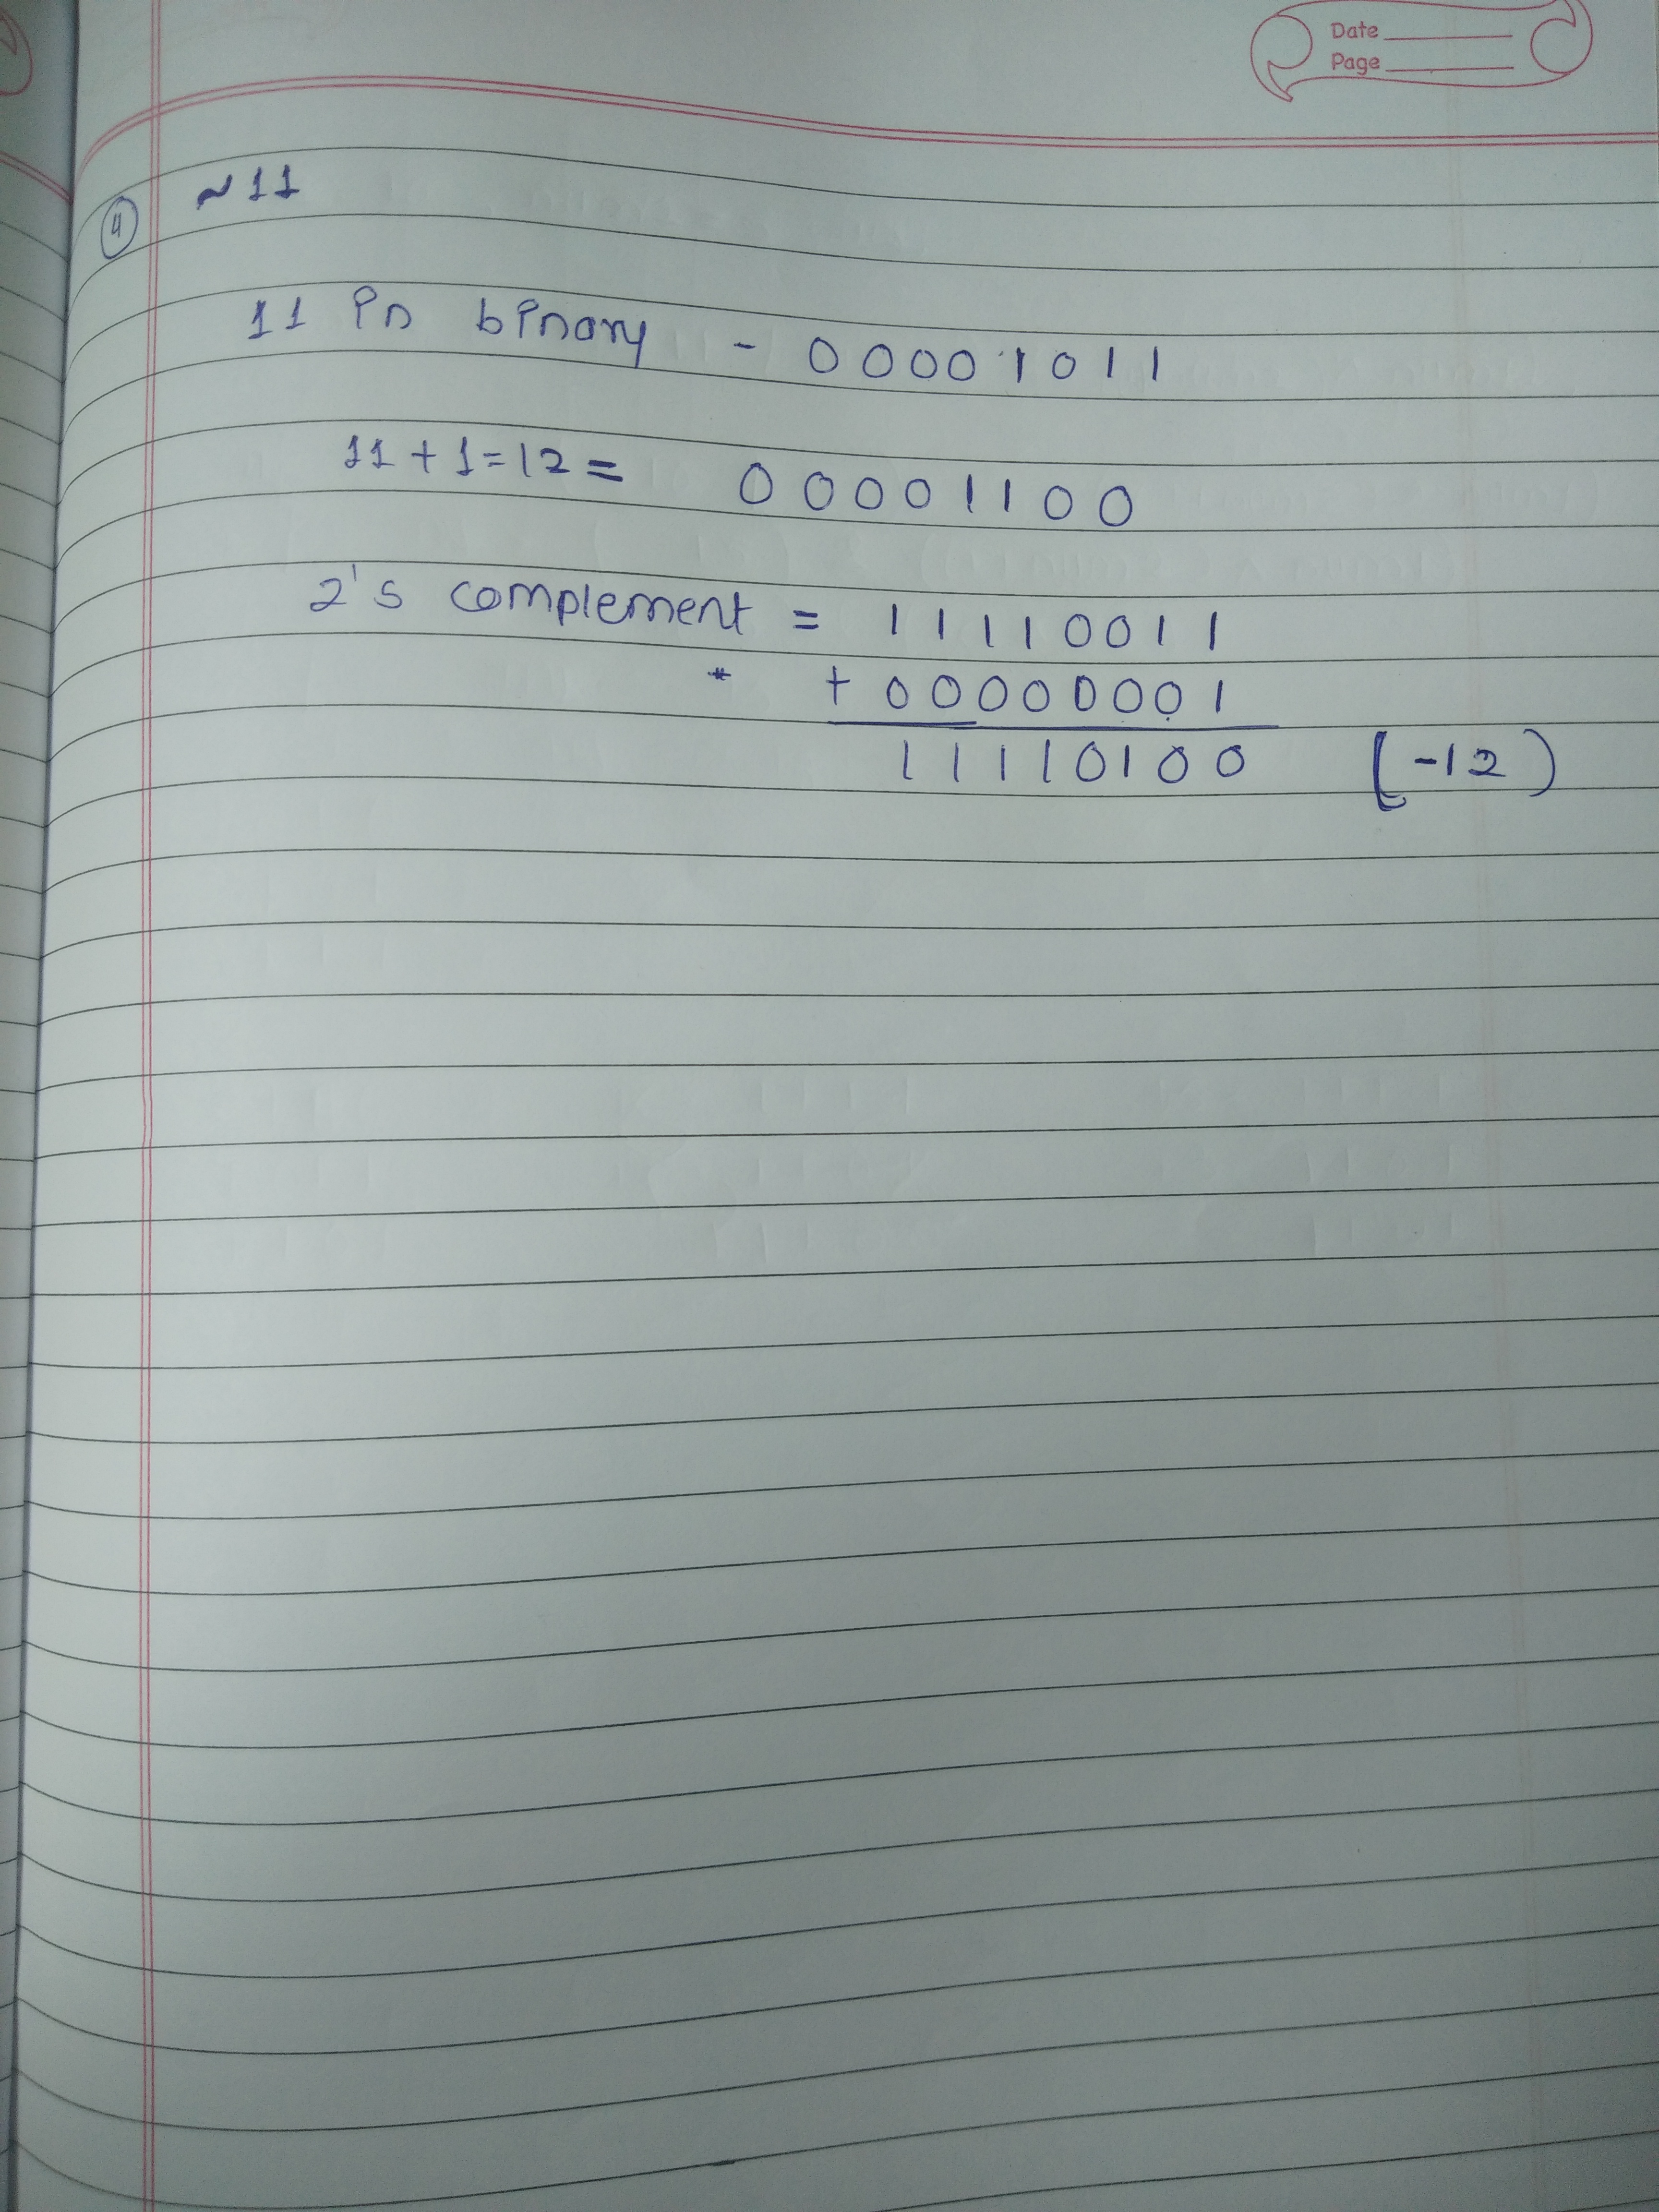 Date
Page
④ ~11
11 in binary - 00001011
11+1=12= 00001100
2's complement = 11110011
* + 00000001
11110100 (-12)